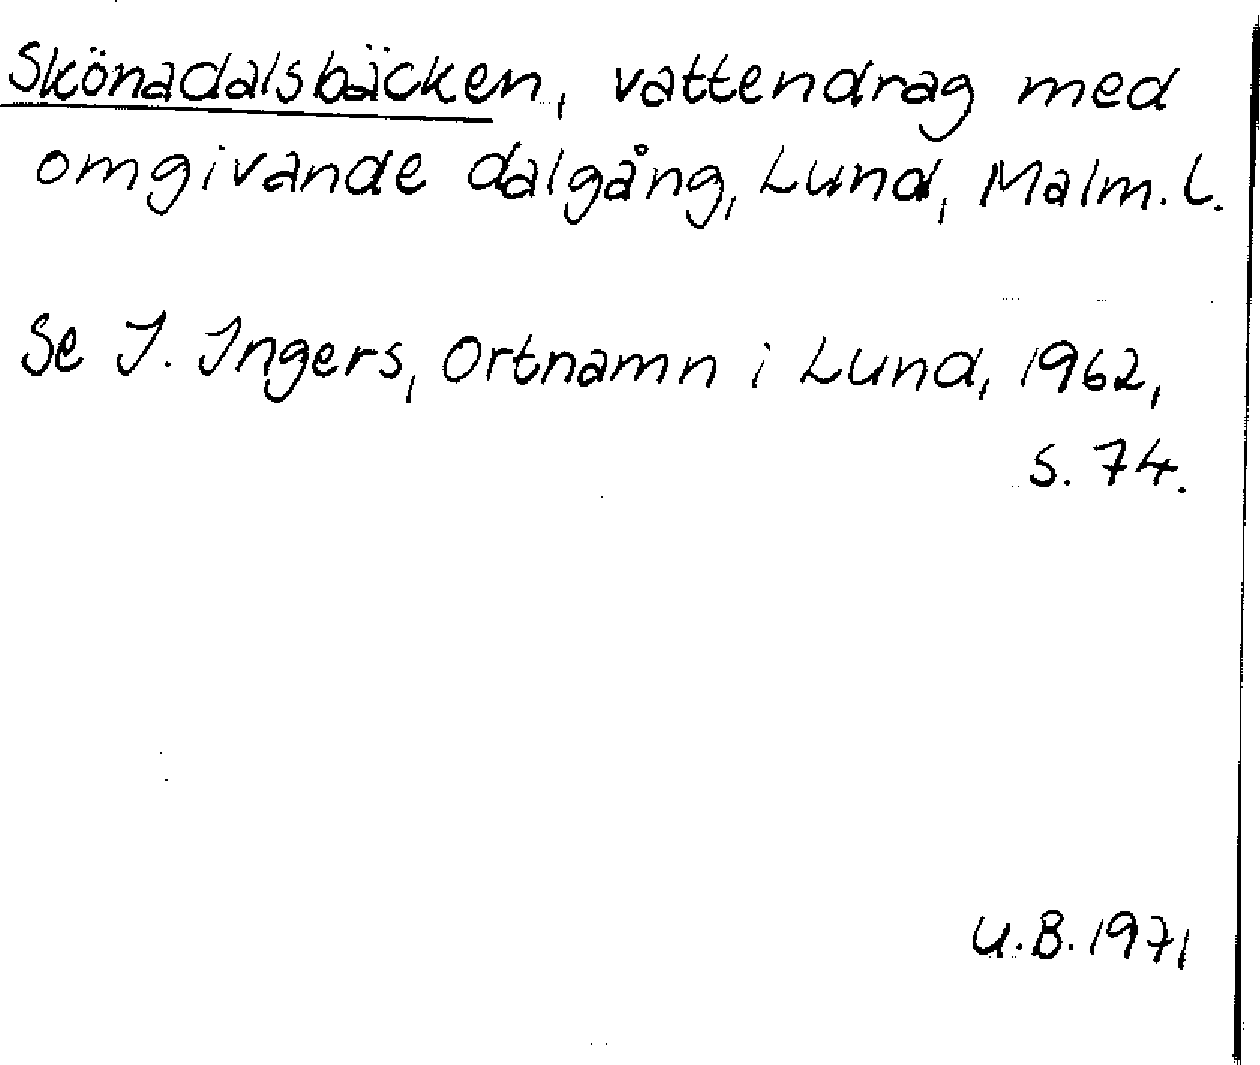 Skönadalsbäcken, vattendrag med
omgivande dalgång, Lund, Malm. L.
Se I. Ingers, Ortnamn i Lund, 1962,
s. 74.
U.B. 1971